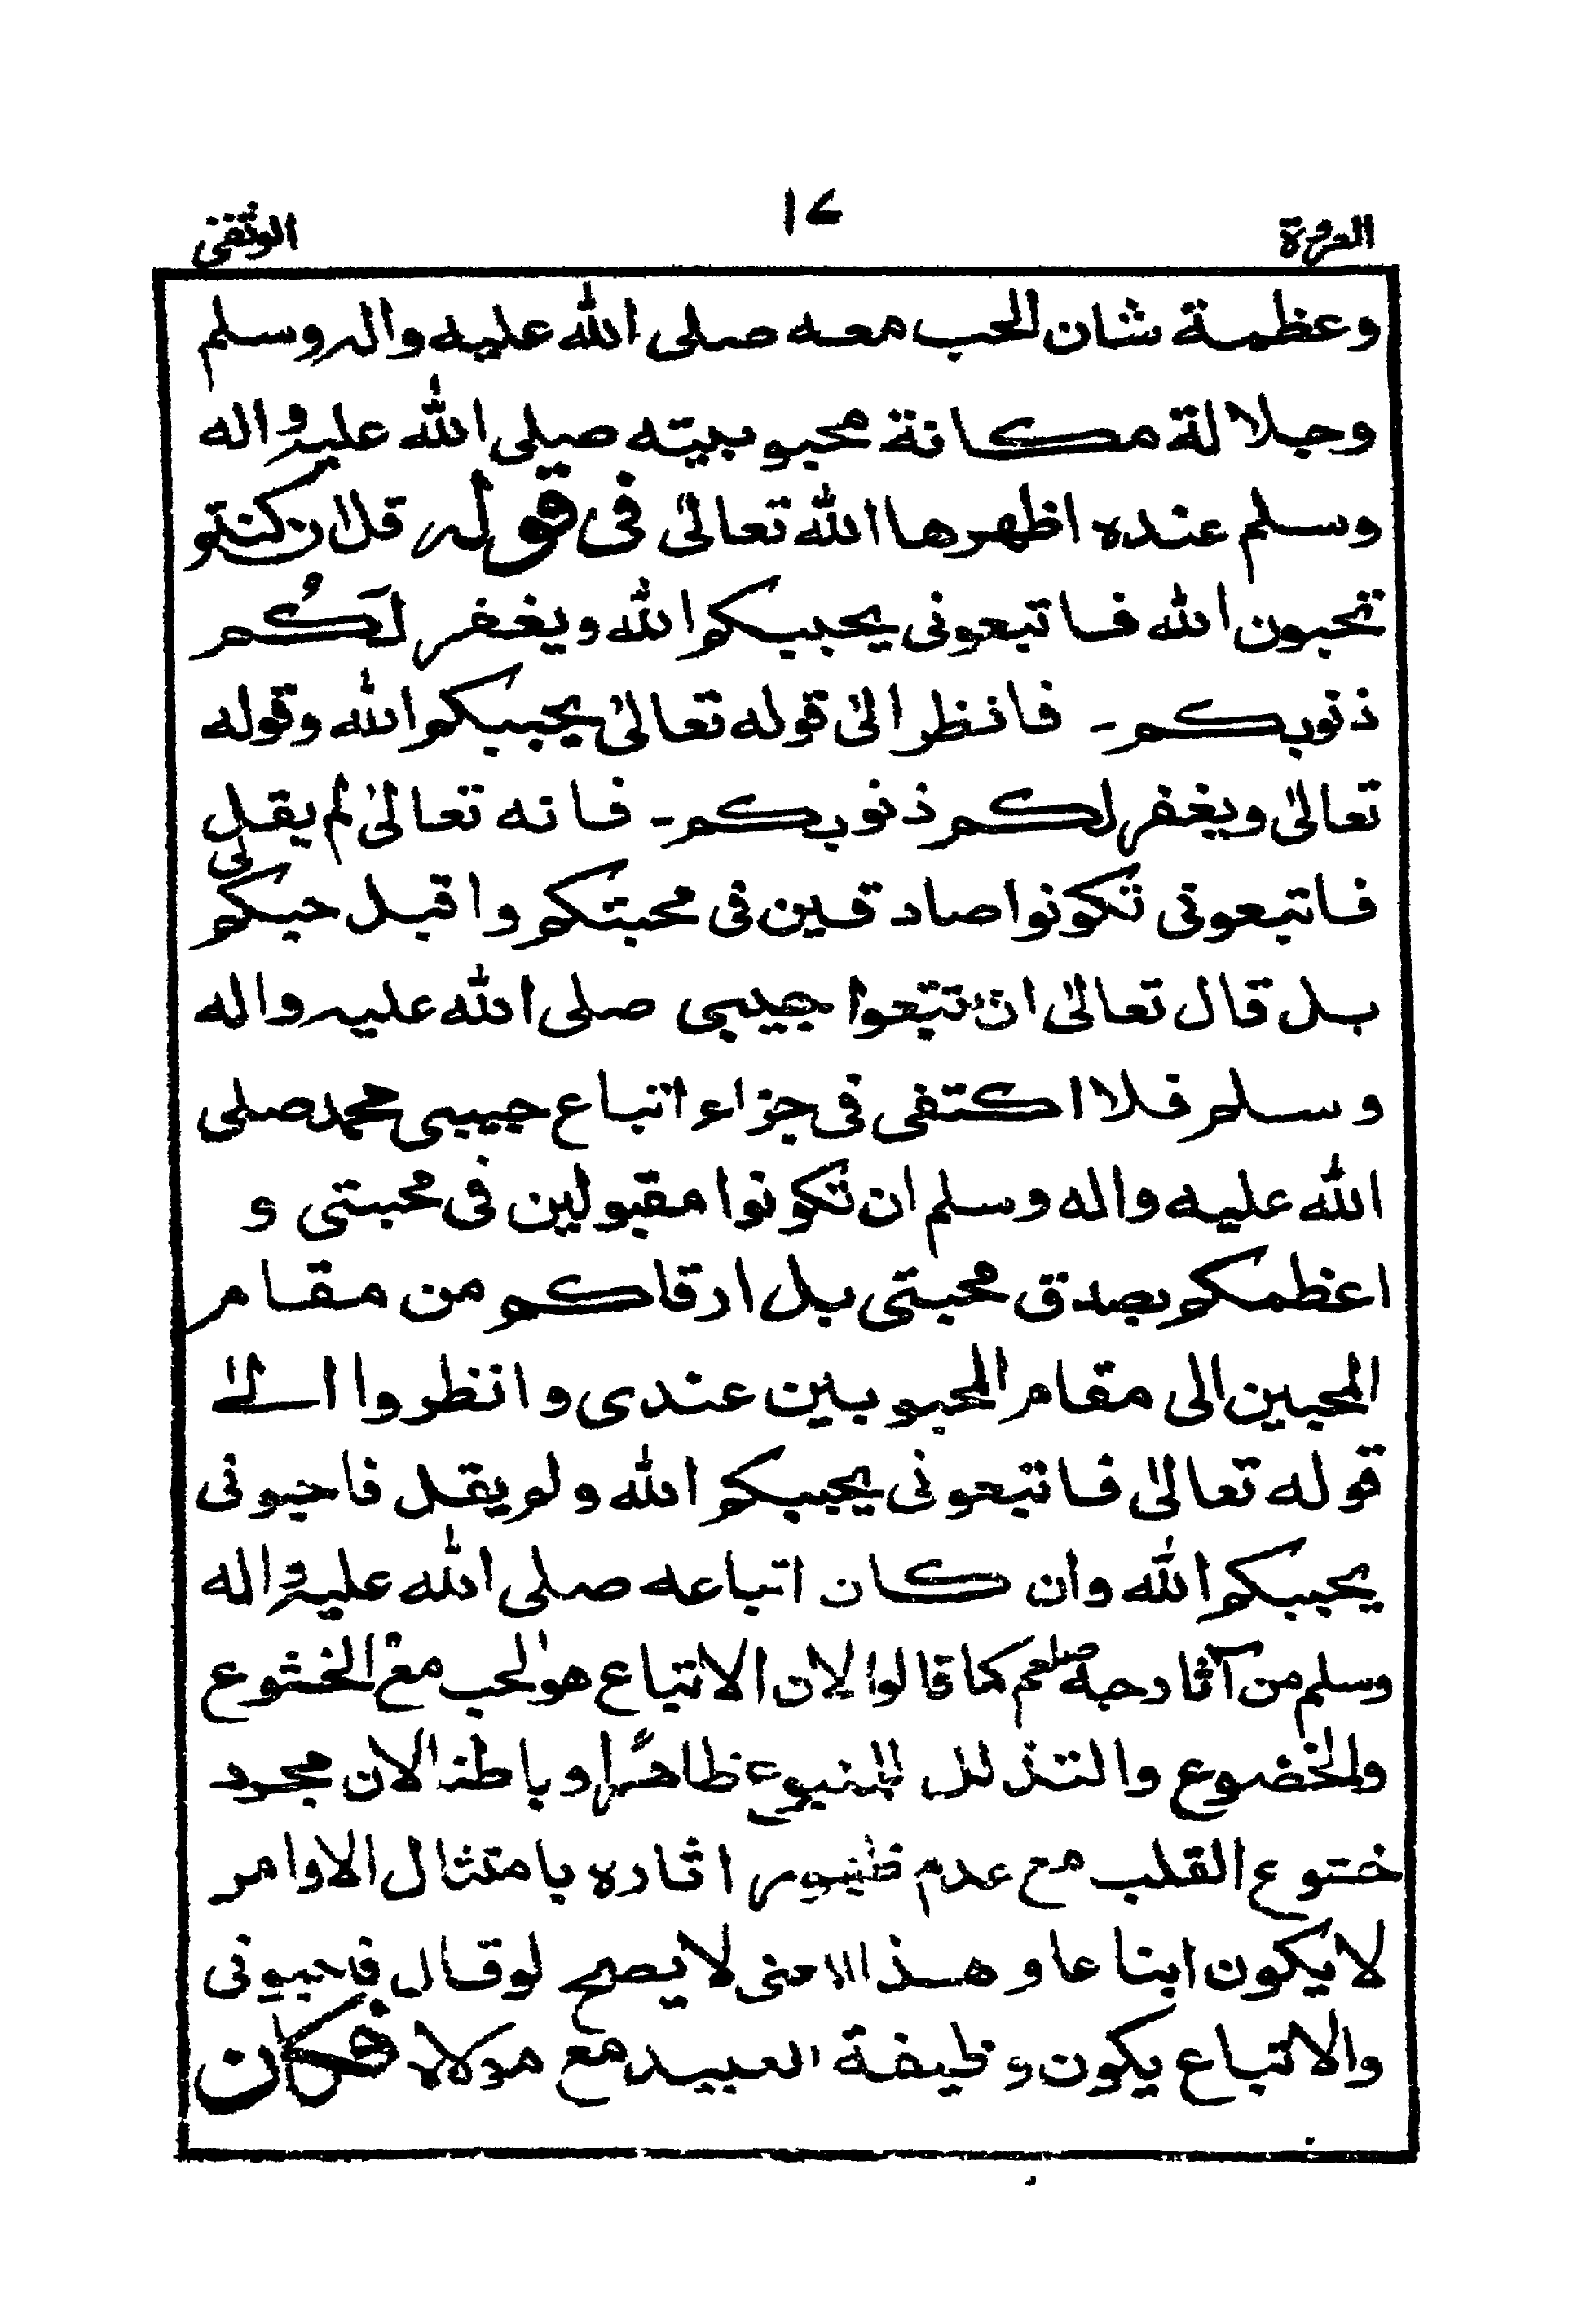 العروة
١٧
الوثقى
وعظمة شان الحب معه صلى الله عليه واله وسلم
وجلالة مكانة محبوبيته صلى الله عليه واله
وسلم عنده اظهرها الله تعالىٰ فى قوله قل ان كنتم
تحبون الله فاتبعونى يحببكم الله ويغفر لَكُم
ذنوبكم۔ فانظر الىٰ قوله تعالىٰ يحببكم الله وقوله
تعالىٰ ويغفر لكم ذنوبكم۔ فانه تعالىٰ لم يقل
فاتبعونى تكونوا صادقين فى محبتكم واقبل حبكم لى
بل قال تعالىٰ ان تتبعوا حبيبى صلى الله عليه واله
وسلم فلا اكتفى فى جزاء اتباع حبيبى محمد صلى
الله عليه واله وسلم ان تكونوا مقبولين فى محبتى و
اعظمكم بصدق محبتى بل ارقاكم من مقام
المحبين الى مقام المحبوبين عندى وانظروا الىٰ
قوله تعالىٰ فاتبعونى يحببكم الله ولم يقل فاحبونى
يحببكم الله وان كان اتباعه صلى الله عليه واله
وسلم من آثار حبه صلعم كما قالوا لان الاتباع هو الحب مع الخشوع
والخضوع والتذلل للمتبوع ظاهرًا وباطنا لان مجرد
خشوع القلب مع عدم ظهور اثاره بامتثال الاوامر
لا يكون اتباعا و هذا المعنى لا يصح لو قال فاحبونى
والاتباع يكون وظيفة العبيد مع مولاه فكان